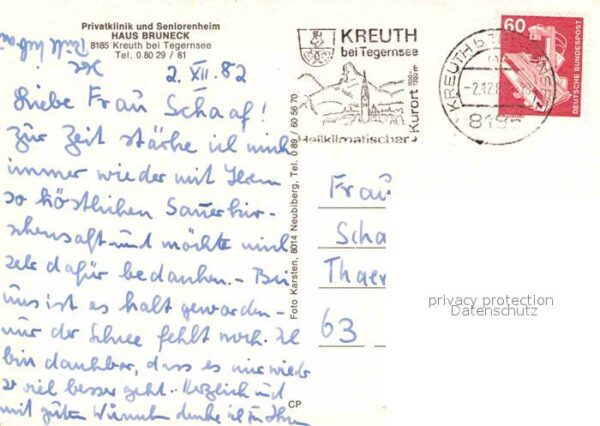 Privatklinik und Seniorenheim
HAUS BRUNECK
8185 Kreuth bei Tegernsee
Tel. 0 80 29 / 81
2. XII. 82
Liebe Frau Schaaf!
Zur Zeit stärke ich mich
immer wieder mit Ihrem
so köstlichen Sauerkir-
schensaft und möchte mich
sehr dafür bedanken. – Bei
uns ist es kalt geworden –
nur der Schnee fehlt noch. Ich
bin dankbar, dass es mir wieder
so viel besser geht. Herzlich und
mit guten Wünschen denke ich an Ihnen
KREUTH
bei Tegernsee
Heilklimatischer
Kurort
KREUTH b
-2.12.8
8185
60
DEUTSCHE BUNDESPOST
Foto Karsten, 8014 Neubiberg, Tel. 0 89 / 60 56 70
CP
Frau
Scha
Thaer
63
privacy protection
Datenschutz